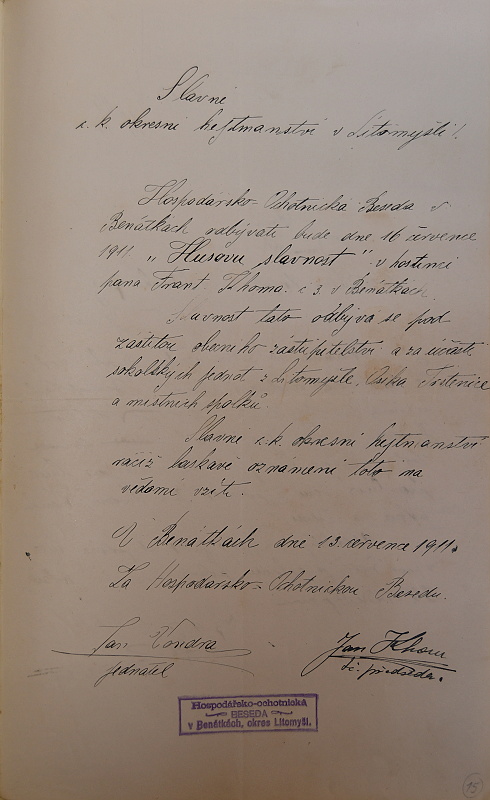 Slavné
c.k. okresní hejtmanství v Litomyšli!
Hospodářsko-Ochotnická Beseda v
Benátkách odbývati bude dne 16 července
1911 „Husovu slavnost" v hostinci
pana Frant. Khoma č 3. v Benátkách.
Slavnost tato odbývá se pod
záštitou obecního zastupitelstva a za účasti
sokolských jednot z Litomyšle, Osíka Trstenice
a místních spolků.
Slavné c.k. okresní hejtmanství
račiž laskavě oznámení toto na
vědomí vzíti.
V Benátkách dne 13. července 1911.
Za Hospodářsko-Ochotnickou Besedu.
Jan Vondra
jednatel
Jan Khom
předseda.
Hospodářsko-ochotnická
BESEDA
v Benátkách, okres Litomyšl.
15